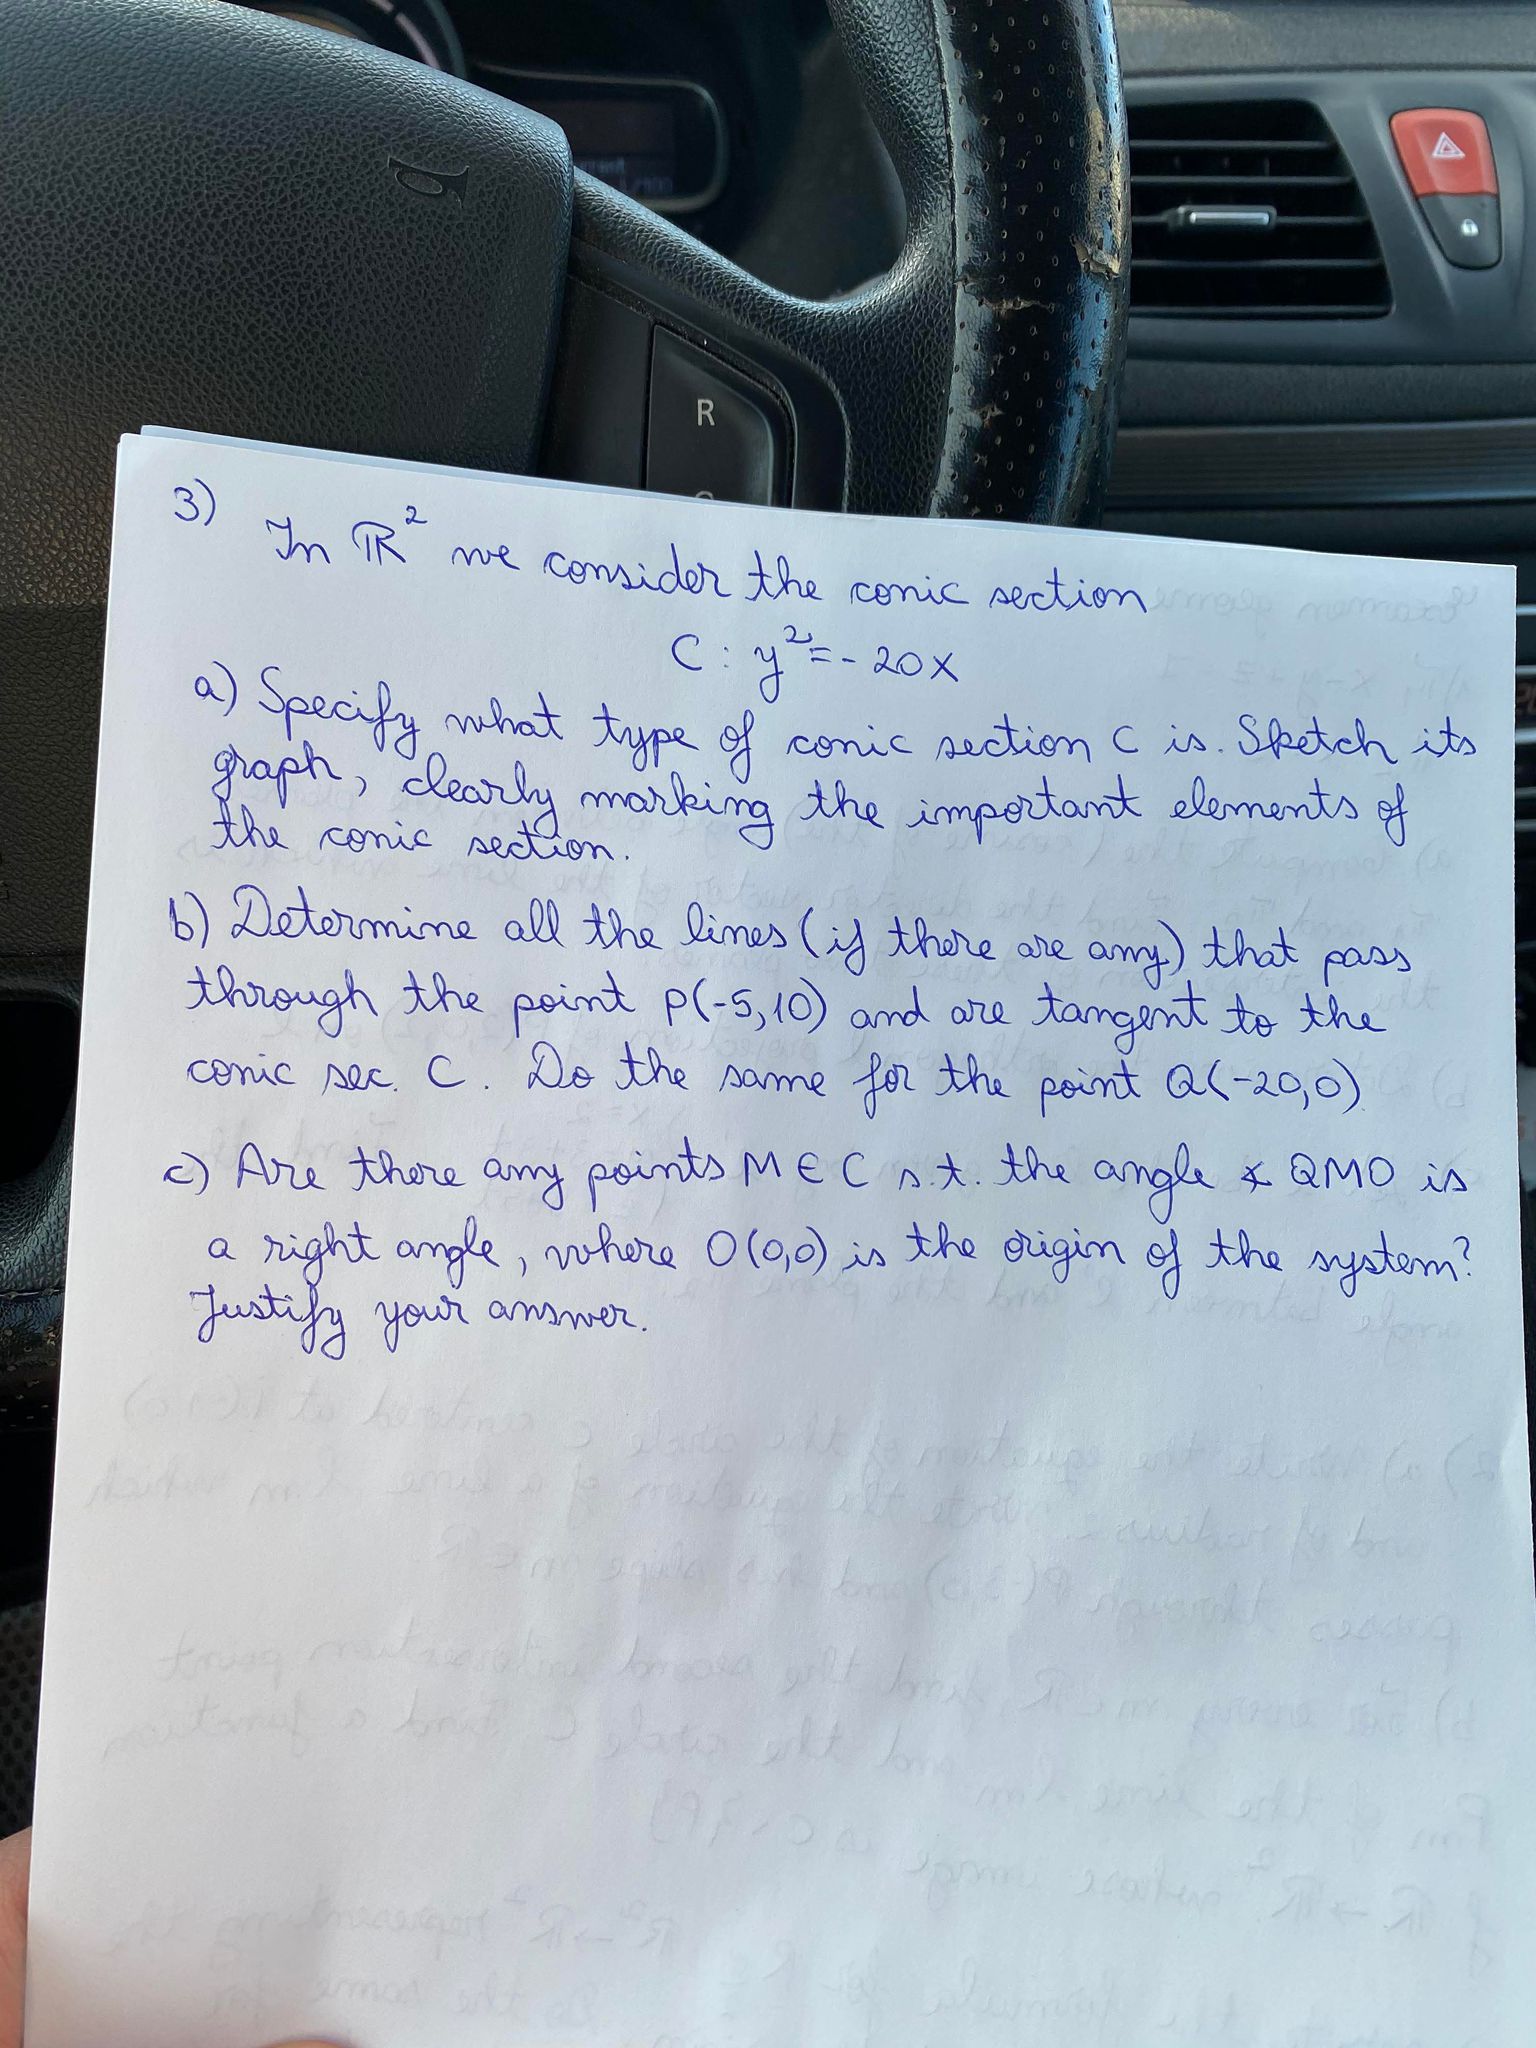 R
3)
In ℝ² we consider the conic section
C: y² = -20x
a) Specify what type of conic section C is. Sketch its
graph, clearly marking the important elements of
the conic section.
b) Determine all the lines (if there are any) that pass
through the point P(-5,10) and are tangent to the
conic sec. C. Do the same for the point Q(-20,0)
c) Are there any points M ∈ C s.t. the angle ∢ QMO is
a right angle, where O(0,0) is the origin of the system?
Justify your answer.